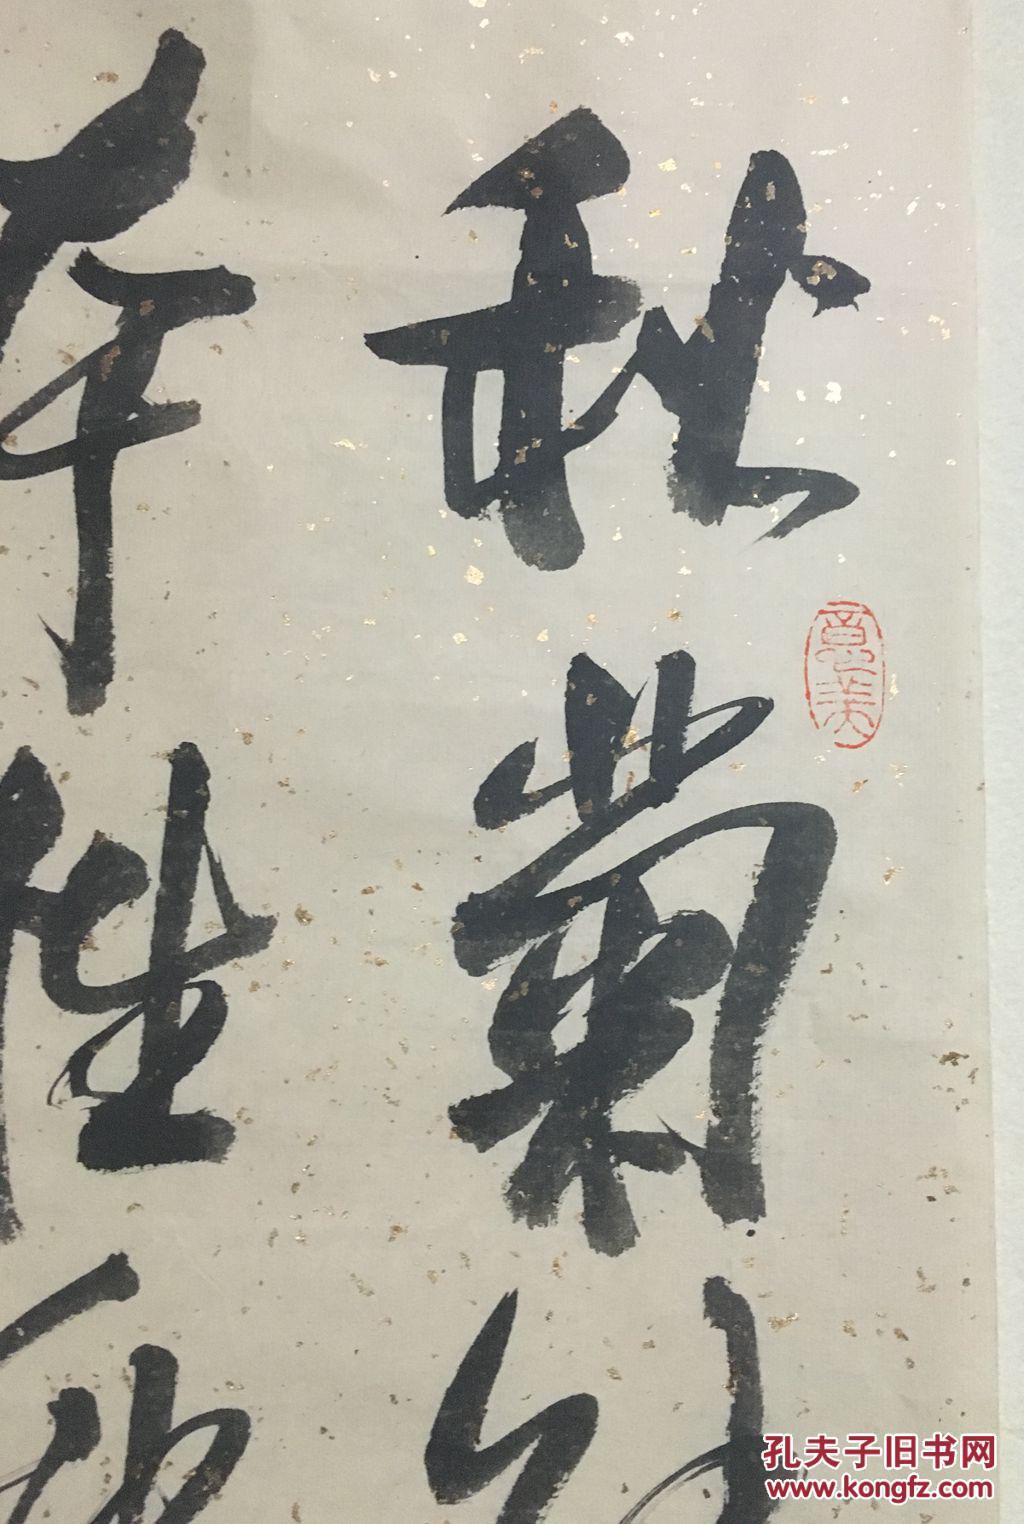 秋菊能
本性
孔夫子旧书网
www.kongfz.com